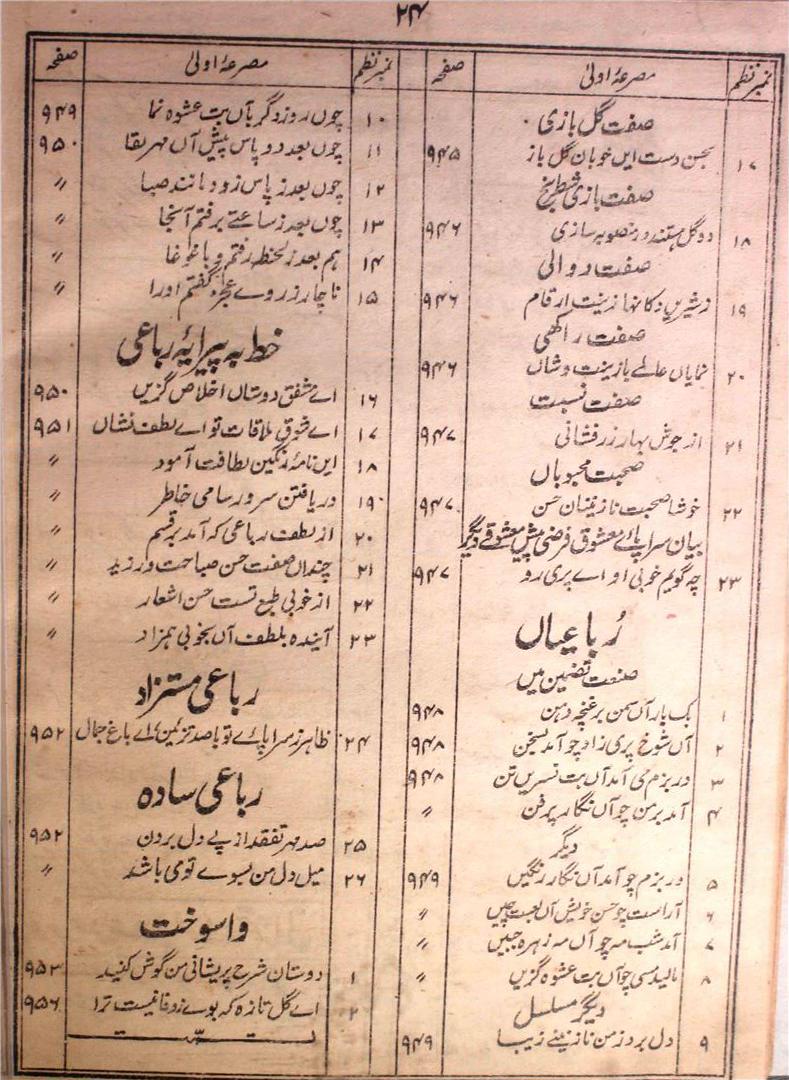 ۲۴
نمبر نظم مصرعۂ اولیٰ صفحہ
صفت گل بازی
۱۷ بحسن دست ایں خوبان گل باز ۹۴۵
صفت بازی شطرنج
۱۸ دہ گل ہستند در منصوبہ سازی ۹۴۶
صفت دوالی
۱۹ ز شیریں دکانہا زینت ارقام ۹۴۶
صفت راکھی
۲۰ نمایاں عالمے با زینت و شاں ۹۴۶
صفت نسبت
۲۱ از جوش بہار زرفشانی ۹۴۷
صحبت محبوباں
۲۲ خوشا صحبت نازنینان حسن ۹۴۷
بیان سراپائے معشوق فرضی پیش معشوقے دیگر
۲۳ چہ گویم خوبی او اے پری رو ۹۴۷
رُباعیاں
صنعت تضمین میں
۱ یک بار آں سمن بر غنچہ دہن ۹۴۸
۲ آں شوخ پری زاد چو آمد بسخن ۹۴۸
۳ در بزم می آمد آں بت نسریں تن ۹۴۸
۴ آمد بر من چو آں نگار پر فن 〃
دیگر
۵ در بزم چو آمد آں نگار رنگیں ۹۴۹
۶ آراست چو حسن خویش آں لعبت چیں 〃
۷ آمد شب مہ چو آں مہ زہرہ جبیں 〃
۸ مالید مسی چو آں بت عشوہ گزیں 〃
دیگر مسلسل
۹ دل برد ز من نازنینے زیبا ۹۴۹
نمبر نظم مصرعۂ اولیٰ صفحہ
۱۰ چوں روز دگر بآں بت عشوہ نما ۹۴۹
۱۱ چوں بعد دو پاس پیش آں مہر بقا ۹۵۰
۱۲ چوں بعد ز پاس زود مانند صبا 〃
۱۳ چوں بعد ز ساعتے برفتم آنجا 〃
۱۴ ہم بعد ز لحظہ رفتم و با غوغا 〃
۱۵ ناچار ز روے عجز گفتم او را 〃
خط بہ پیرایۂ رباعی
۱۶ اے مشفق دوستاں اخلاص گزیں ۹۵۰
۱۷ اے شوق ملاقات تو اے لطف نشاں ۹۵۱
۱۸ ایں نامۂ رنگین لطافت آمود 〃
۱۹ دریافتن سرور سامی خاطر 〃
۲۰ از لطف رباعی کہ آمد برقم 〃
۲۱ چنداں صفت حسن صباحت ورزید 〃
۲۲ از خوبی طبع تست حسن اشعار 〃
۲۳ آیندہ بلطف آں بخوبی ہمزاد 〃
رباعی مستزاد
۲۴ ظاہر ز سراپائے تو با صد تزئین اے باغ جمال ۹۵۲
رباعی سادہ
۲۵ صد مہر تفقد از پے دل بردن ۹۵۲
۲۶ میل دل من بسوے تو می باشد 〃
واسوخت
۱ دوستان شرح پریشانی من گوش کنید ۹۵۳
۲ اے گل تازہ کہ بوے ز وفا نیست ترا ۹۵۶
تمت